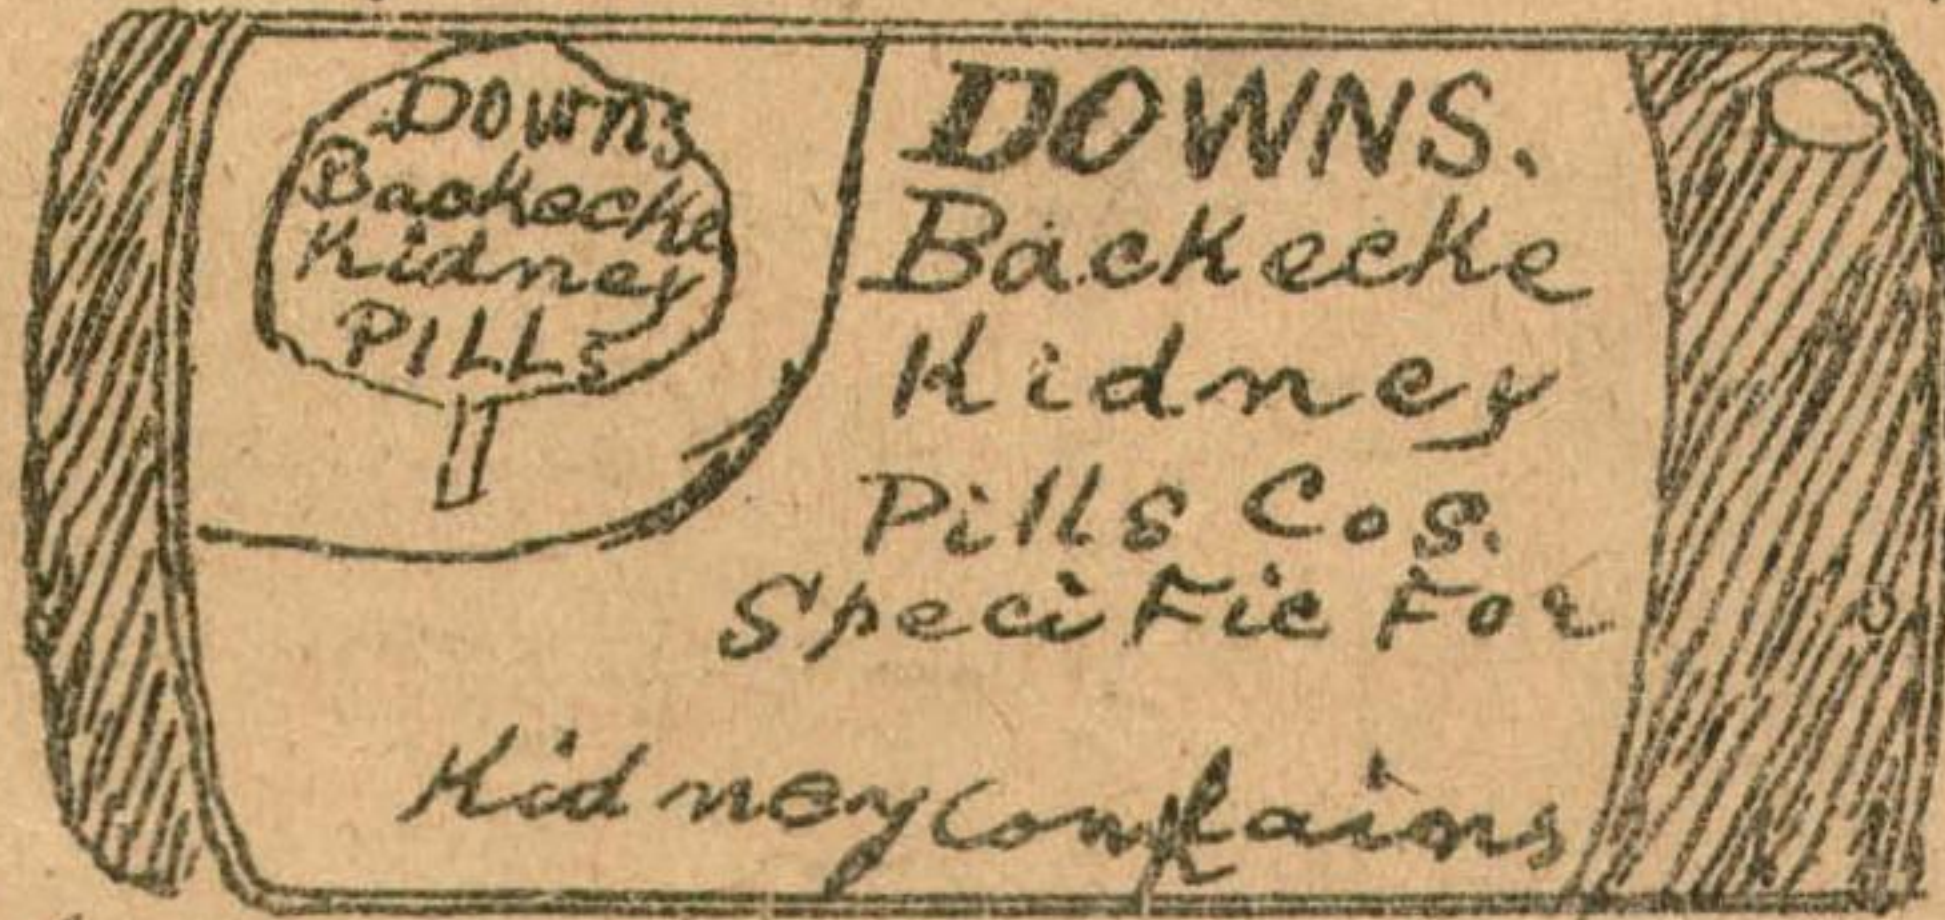 Downs
Backecke
Kidney
PILLS
DOWNS.
Backecke
Kidney
Pills Cos.
Specific For
Kidney Complains